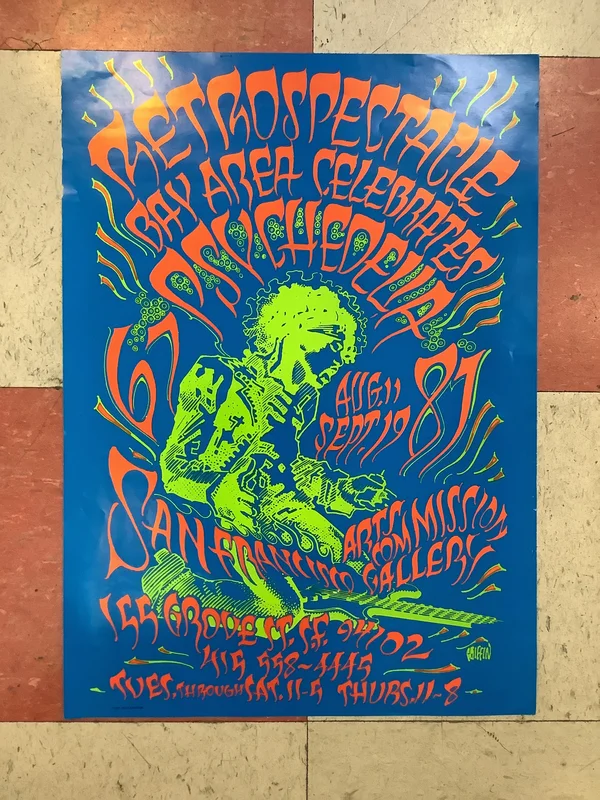 RETROSPECTACLE
BAY AREA CELEBRATES
PSYCHEDELIA
67
87
AUG. 11
SEPT. 19
SAN FRANCISCO
ARTS
COMMISSION
GALLERY
155 GROVE ST. S.F. 94102
415 558-4445
TUES. THROUGH SAT. 11-5 THURS. 11-8
GRIFFIN